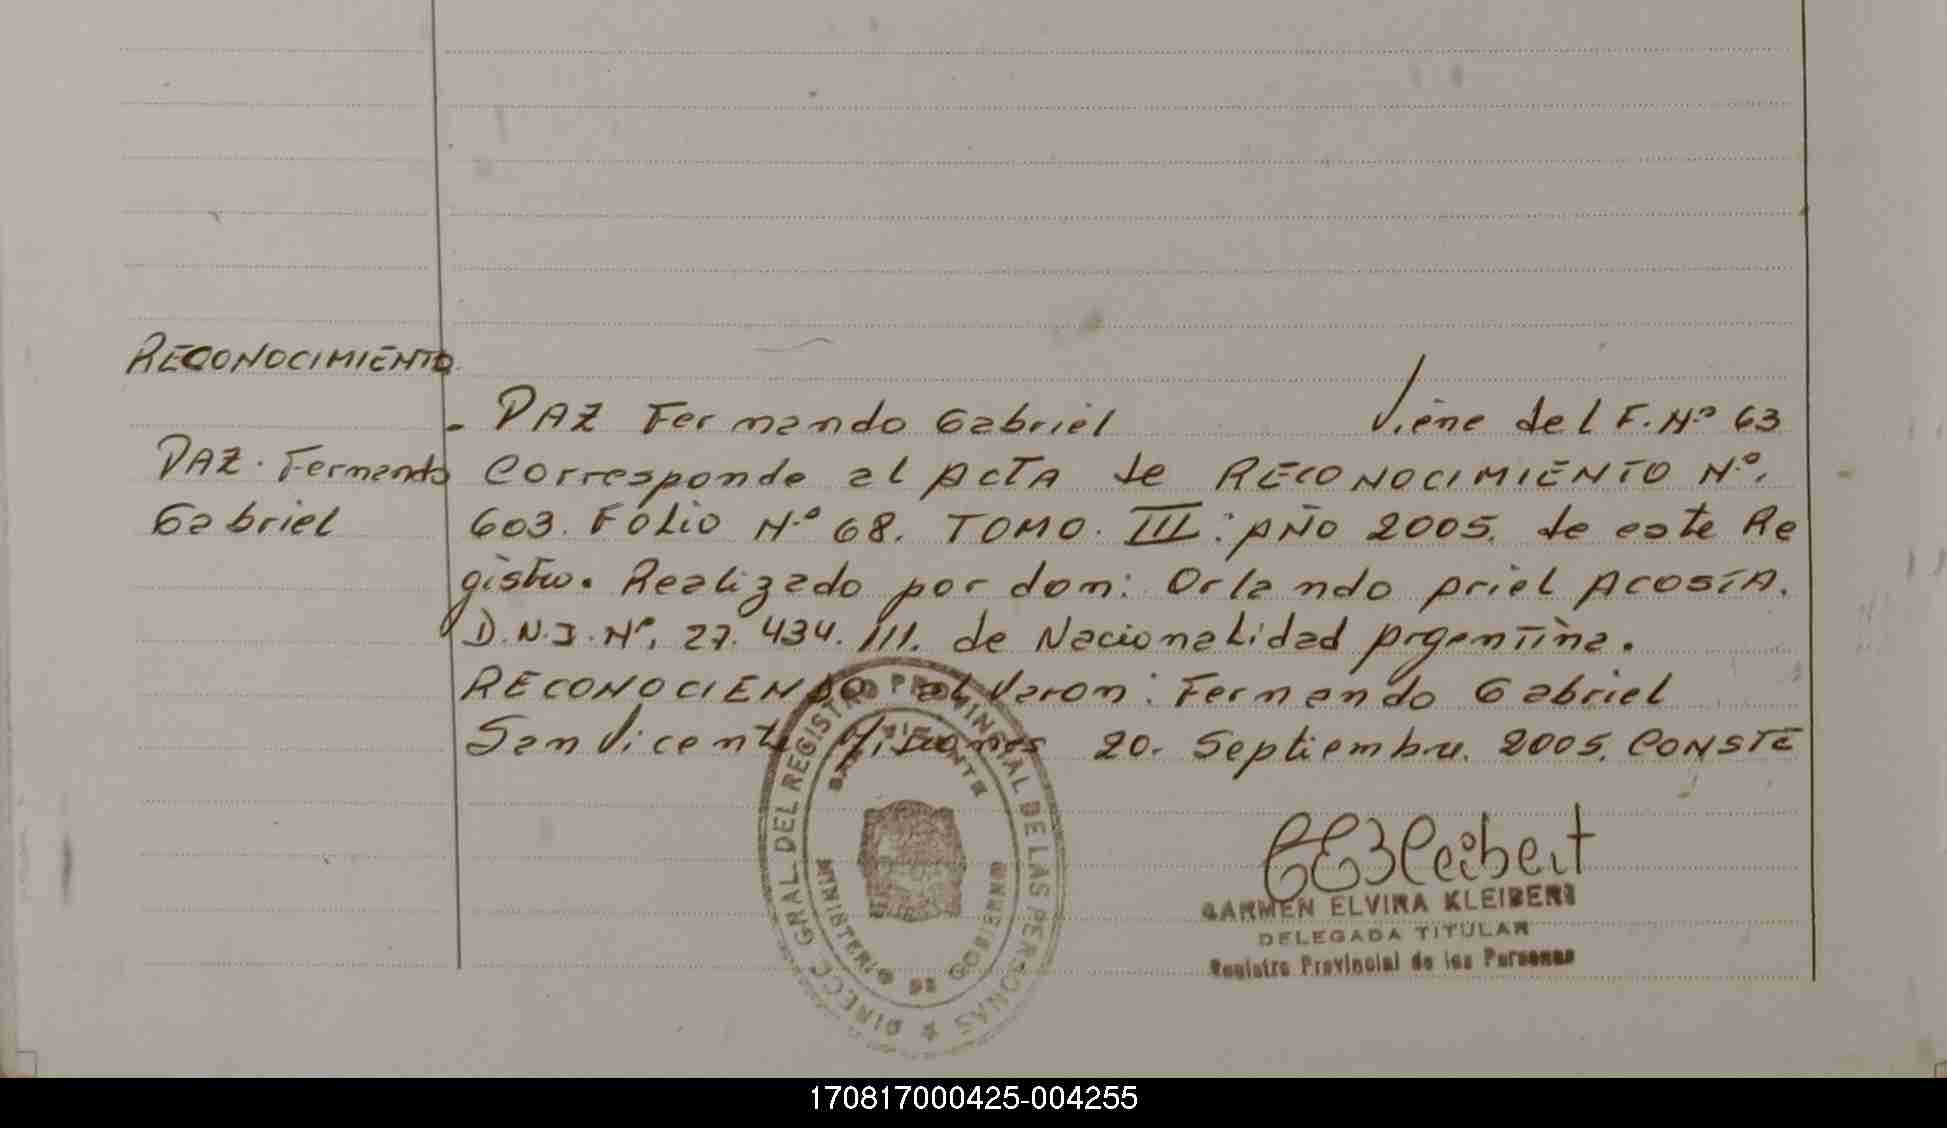 RECONOCIMIENTO.
PAZ. Fernando
Gabriel
- PAZ Fernando Gabriel Viene del F. Nº 63
Corresponde al ACTA de RECONOCIMIENTO Nº.
603. FOLIO Nº 68. TOMO. III: AÑO 2005. de este Re
gistro. Realizado por don: Orlando Ariel ACOSTA.
D.N.I. Nº. 27.434.111. de Nacionalidad Argentina.
RECONOCIENDO al Varon: Fernando Gabriel
San Vicente Misiones 20. Septiembre. 2005. CONSTE
DIRECC. GRAL. DEL REGISTRO PROVINCIAL DE LAS PERSONAS
SAN VICENTE
MINISTERIO DE GOBIERNO
CARMEN ELVIRA KLEIBERT
DELEGADA TITULAR
Registro Provincial de las Personas
170817000425-004255